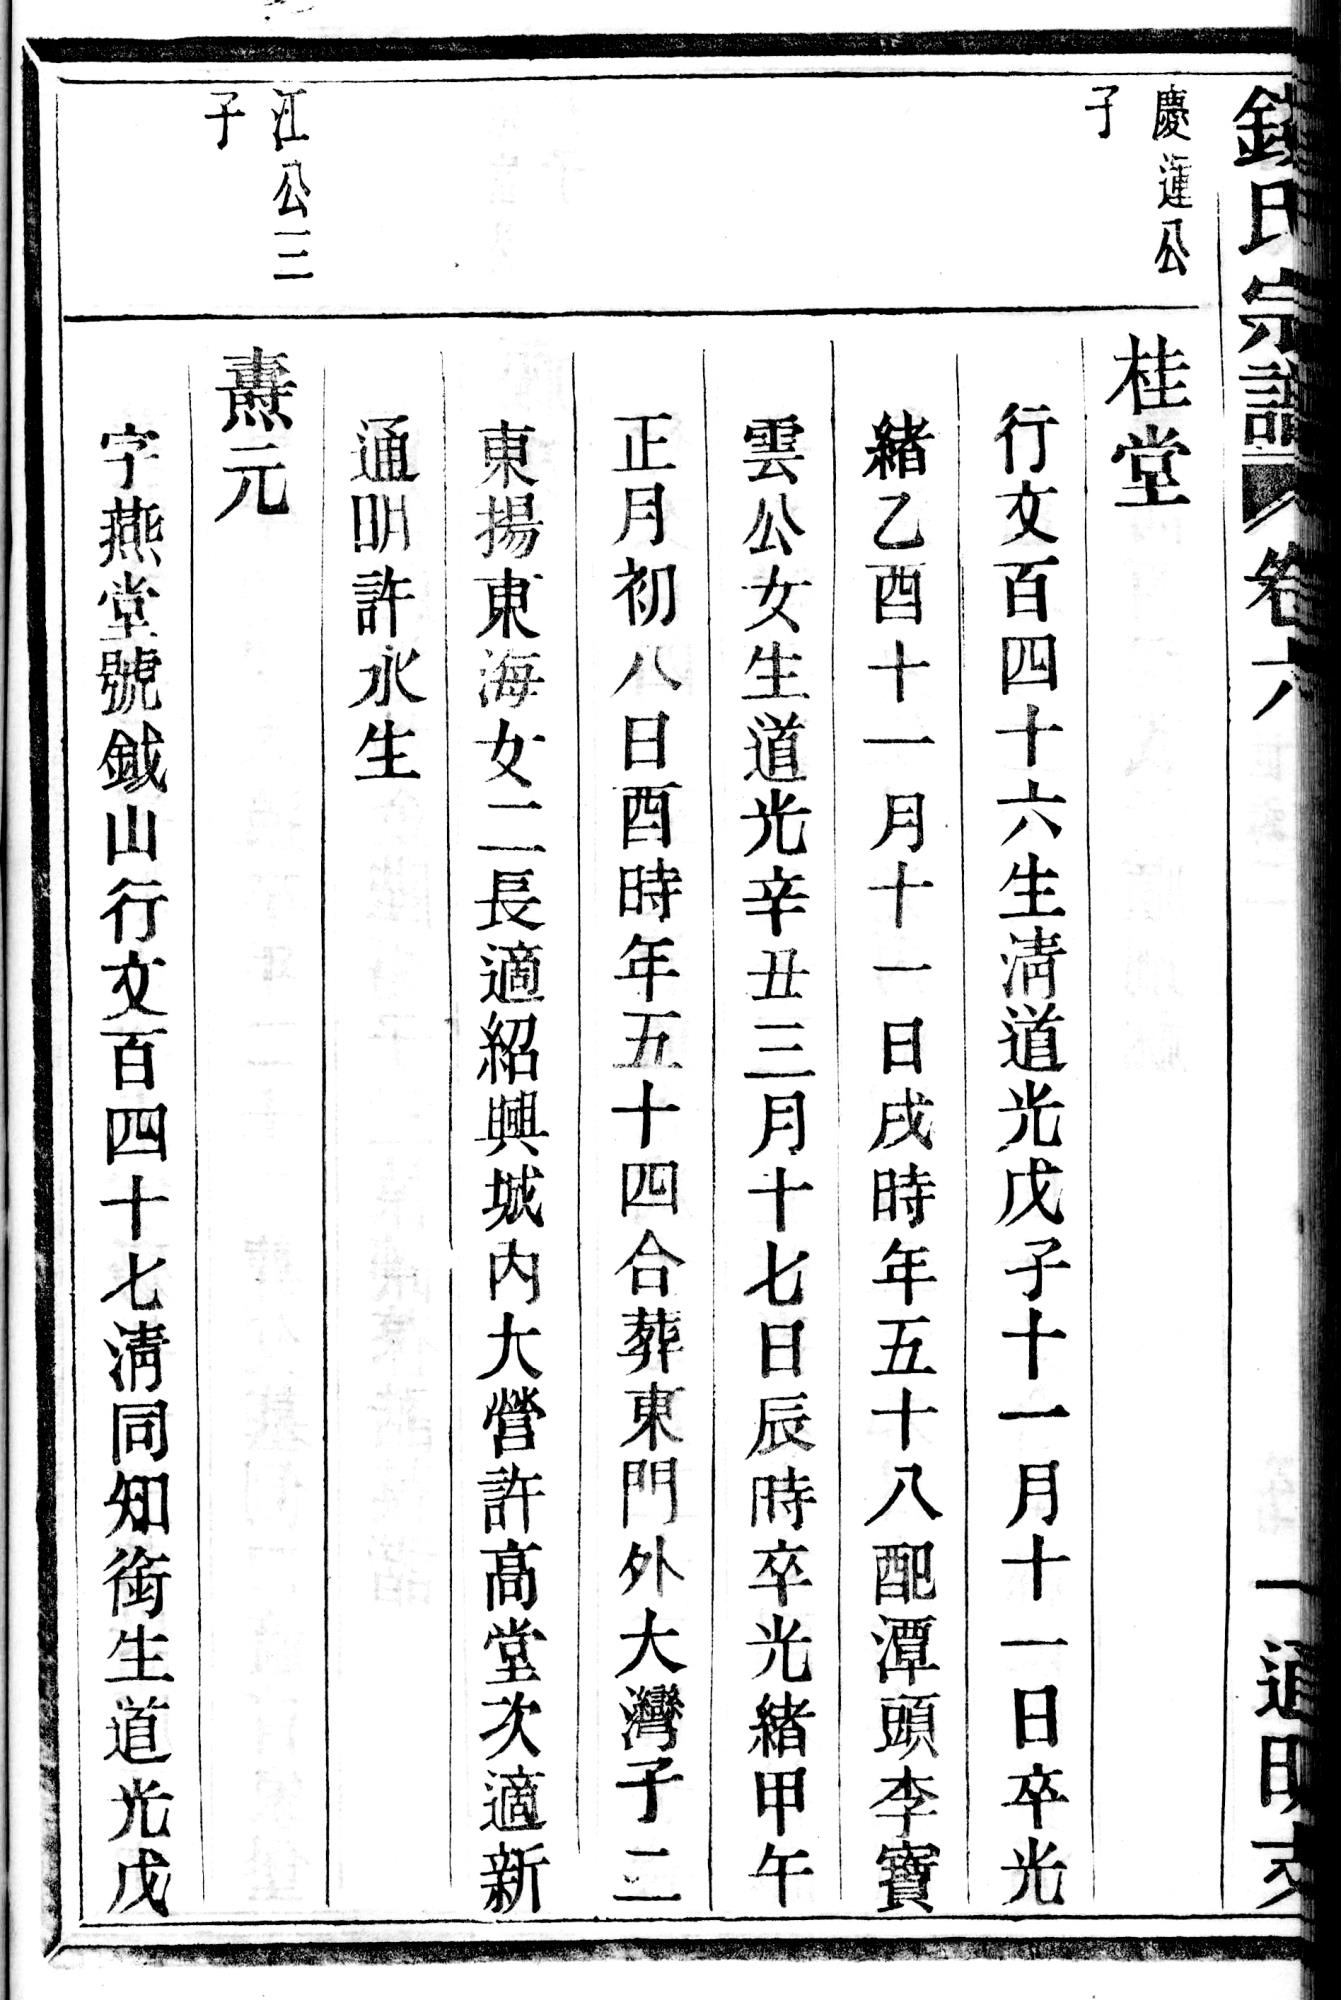 錢氏宗譜 卷六 一 通明支
慶運公
子
桂堂
行文百四十六生清道光戊子十一月十一日卒光
緒乙酉十一月十一日戌時年五十八配潭頭李寶
雲公女生道光辛丑三月十七日辰時卒光緒甲午
正月初八日酉時年五十四合葬東門外大灣子二
東揚東海女二長適紹興城內大營許高堂次適新
通明許永生
江公三
子
燾元
字燕堂號鉞山行文百四十七清同知銜生道光戊